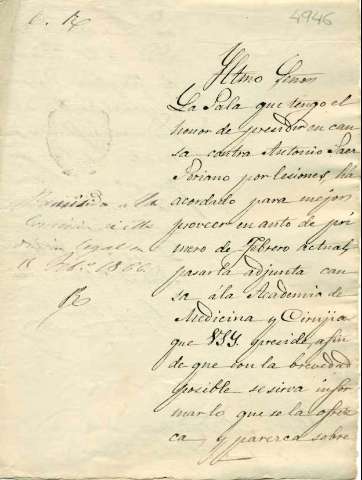 4946
Iltmo Señor
La Sala que tengo el
honor de presidir en cau
sa contra Antonio Saez
Soriano por lesiones, há
acordado para mejor
proveer en auto de pri
mero de Febrero actual,
pasar la adjunta cau
sa á la Academia de
Medicina y Cirujia
que VSY preside, afin
de que con la brevedad
posible se sirva infor
mar lo que se la ofrez
ca y parezca sobre
Remitido a la
Comision de
legal en
1866.